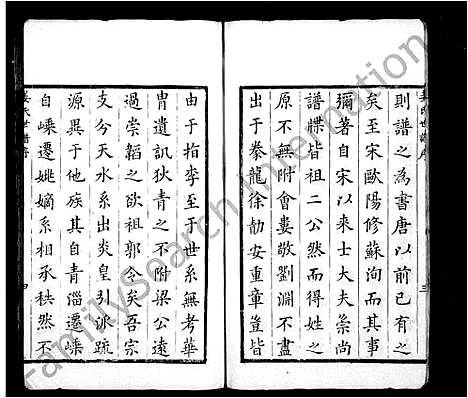 姜氏世譜序
三
則譜之為書唐以前已有之
矣至宋歐陽修蘇洵而其事
彌著自宋以來士大夫崇尚
譜牒皆祖二公然而得姓之
原不無附會婁敬劉淵不盡
出于豢龍徐勣安重章豈皆
由于指李至于世系無考華
胄遺譏狄青之不附梁公遠
過崇韜之欲祖郭令矣吾宗
支分天水系出炎皇引派疏
源異于他族其自青淄遷嵊
自嵊遷姚嫡系相承秩然不
姜氏世譜序
四
FamilySearch International